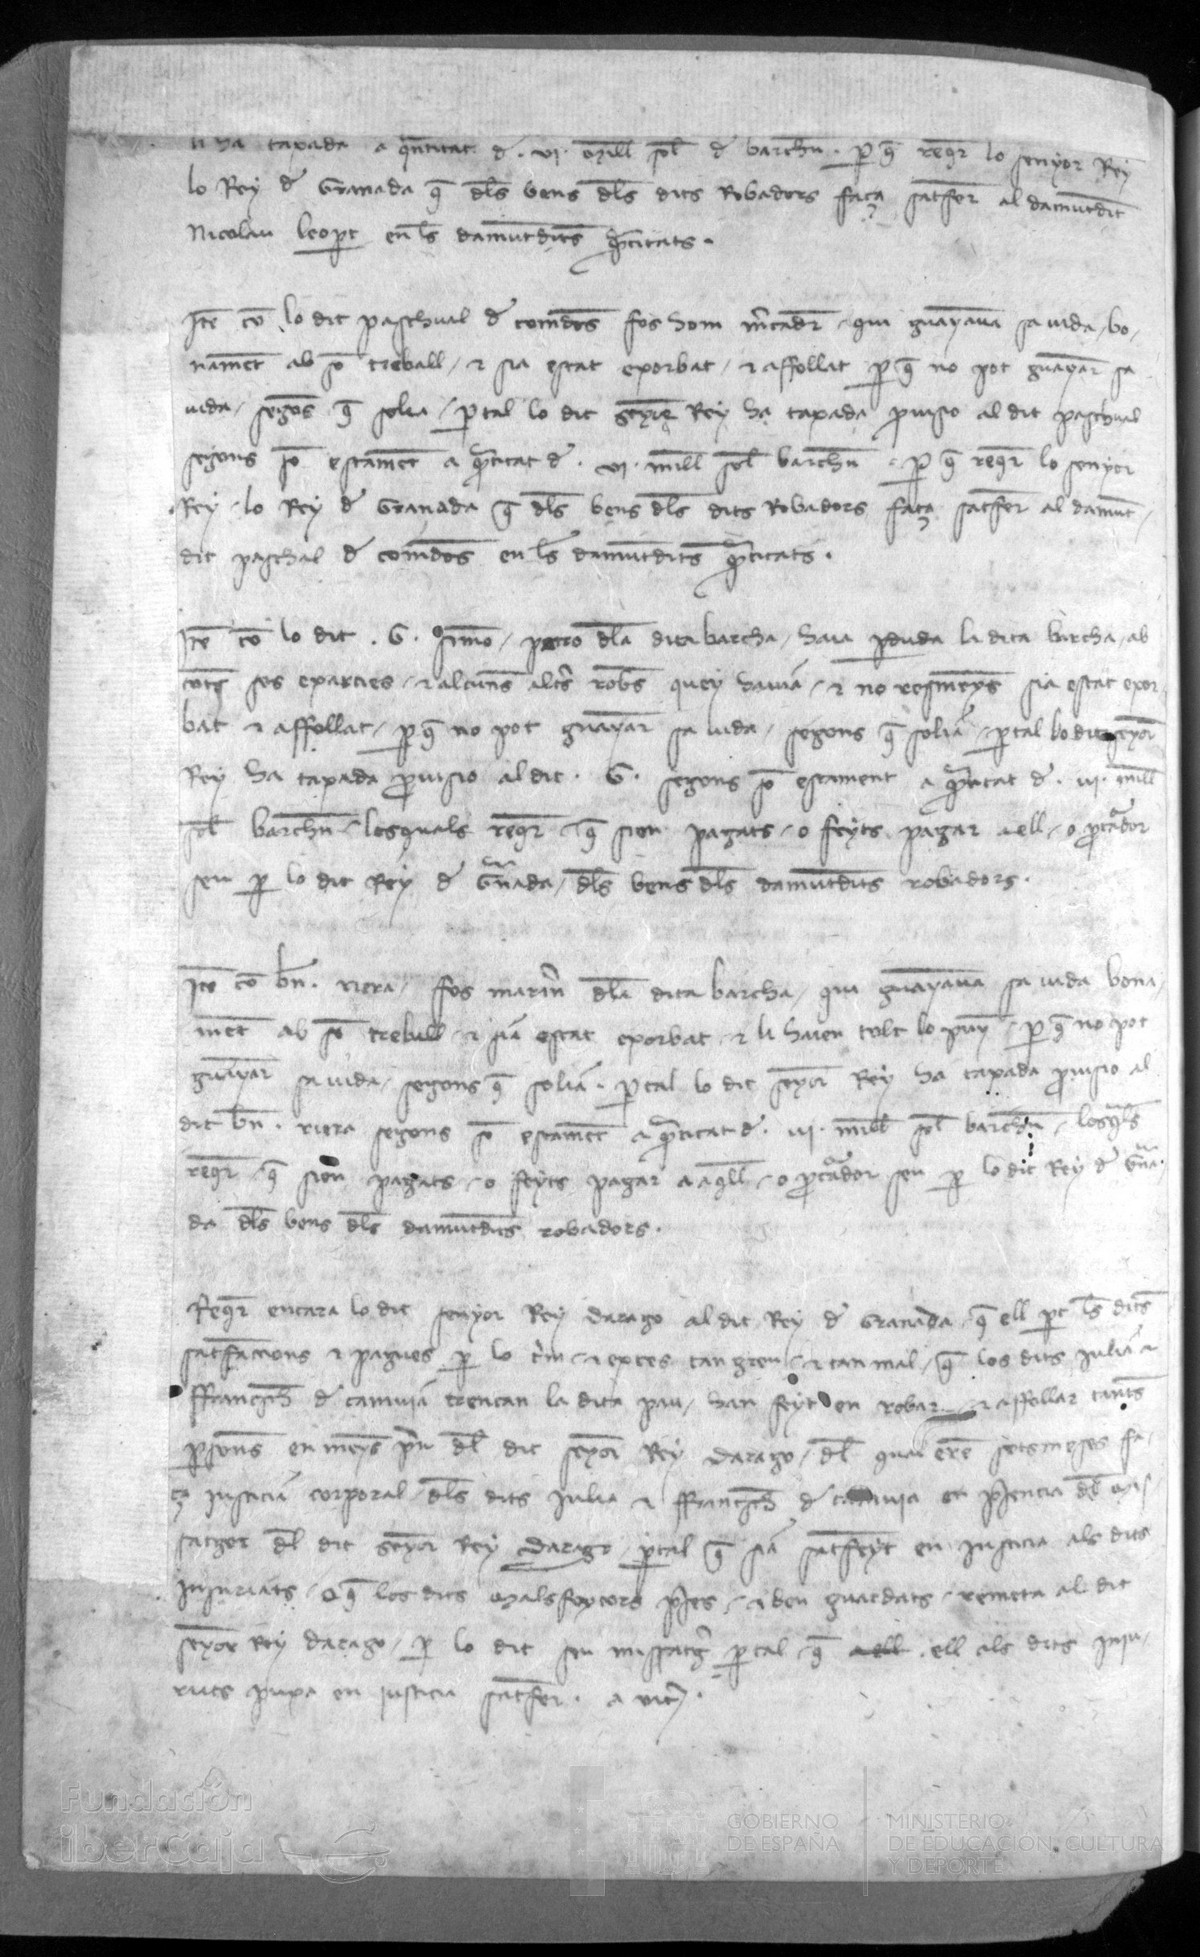 li ha taxada a q̄ntitat d̄ · vi · mill sol̄ d̄ barchn̄ · ꝑ q̄ req̄r lo senyor Rey
lo Rey d̄ Granada q̄ dl̄s bens dl̄s dits Robadors faça satisfer̄ al damūtdit
Nicolau leoꝑt en l̄s damūtdits q̄ntitats ·
Itē cō lo dit paschual d̄ comdōs fos hom m̄cadr̄ qui guāyava sa vida bo
namēt ab sō treball / ⁊ sia estat exorbat / ⁊ affollat ꝑ q̄ no pot guāyar sa
vida / segōs q̄ solia / ꝑ tal lo dit sēyor Rey ha taxada ꝓvisio al dit paschual
segons sō estamēt a q̄ntitat d̄ · vi · mill sol̄ barchn̄ · ꝑ q̄ req̄r lo senyor
Rey / lo Rey d̄ Granada q̄ dl̄s bens dl̄s dits Robadors faça satisfer̄ al damūt
dit paschal d̄ comdōs en l̄s damūtdits q̄ntitats ·
Itē cō lo dit · G · simo / patro dl̄a dita barcha / havia ꝑduda la dita barcha / ab
tots ses exarcies / ⁊ alcuns alt̄s robs̄ quey havia / ⁊ no resmenys sia estat exor
bat ⁊ affollat / ꝑ q̄ no pot guāyar sa vida / segons q̄ solia / ꝑ tal lo dit sēyor
Rey ha taxada ꝓvisio al dit · G · segons sō estament a q̄ntitat d̄ · vi · mill
sol̄ barchn̄ / los quals req̄r q̄ sien pagats / o feyts pagar a ell / o ꝓcādor
seu ꝑ lo dit Rey d̄ Gn̄ada / dl̄s bens dl̄s damūtdits robadors ·
Itē cō bn̄ · riera / fos marin̄ dl̄a dita barcha / qui guāyava sa vida bona
mēt ab sō treball / ⁊ sia estat exorbat / ⁊ li haien tolt lo puny / ꝑ q̄ no pot
guāyar sa vida / segons q̄ solia · ꝑ tal lo dit sēyor Rey ha taxada ꝓvisio al
dit bn̄ · riera segons sō estamēt a q̄ntitat d̄ · vi · mill sol̄ barchn̄ / los q̄ls
req̄r / q̄ sien pagats / o feyts pagar a aq̄ll / o ꝓcādor seu ꝑ lo dit Rey d̄ Gn̄a
da dl̄s bens dl̄s damūtdits robadors ·
Req̄r encara lo dit senyor Rey darago al dit Rey d̄ Granada q̄ ell ꝑ l̄s dits
satisfaccions ⁊ pagues ꝑ lo crim / ⁊ exces tan greu / ⁊ tan mal / q̄ los dits Julia ⁊
ffrancesch d̄ trencan la dita pau / han feyt en robar ⁊ affollar tants
ꝑsones en menys ꝑu dl̄ dit sēyor Rey darago / dl̄ qual erē sotsmeses fa
ça justicia corporal / dl̄s dits Julia ⁊ ffrancesch d̄ en p̄sencia dl̄ mis
satger dl̄ dit sēyor Rey darago / ꝑ tal q̄ sia satisfeyt en justicia als dits
injuriats / o q̄ los dits malfeytors p̄ses / ⁊ ben guardats / remeta al dit
sēyor Rey darago / ꝑ lo dit seu missatḡ ꝑ tal q̄ ell als dits inju
riats puxa en justicia satisfer ·
Fundación
iberCaja
GOBIERNO
DE ESPAÑA
MINISTERIO
DE EDUCACIÓN, CULTURA
Y DEPORTE